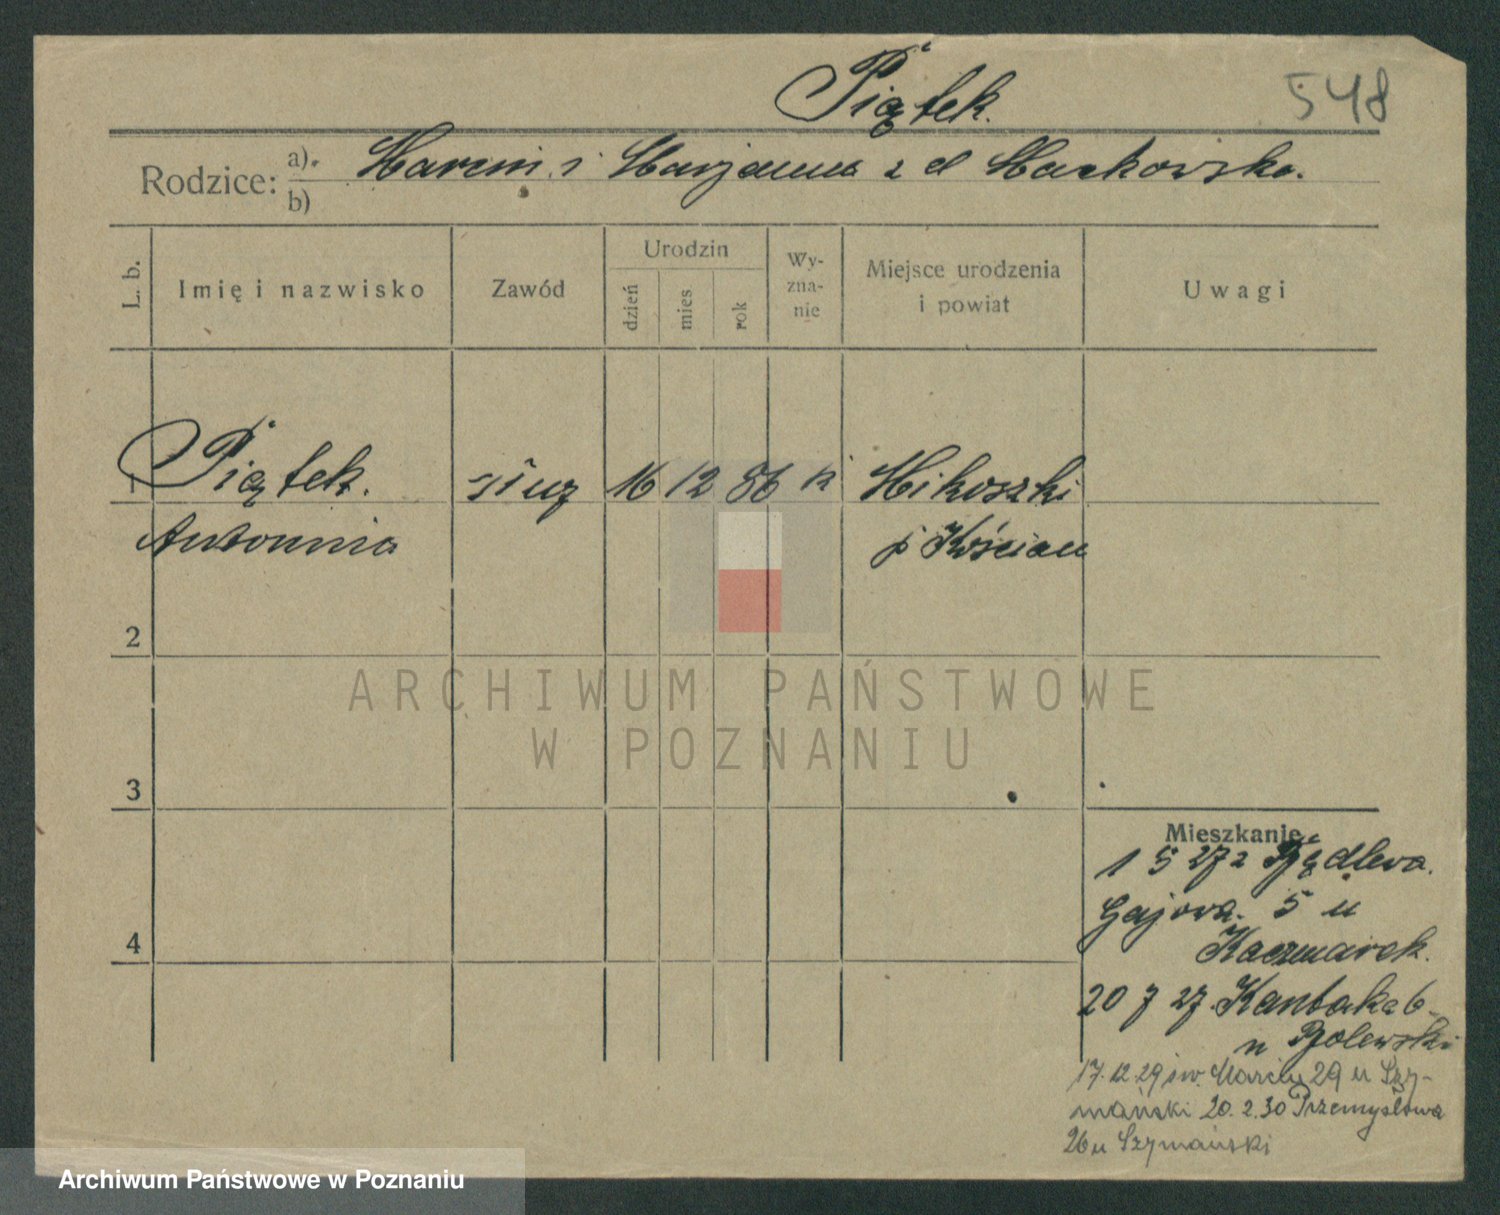 Piątek.
548
Rodzice: a). Marcin i Marjanna z d Maćkowska.
b)
L. b.
Imię i nazwisko
Zawód
Urodzin
dzień
mies
rok
Wy-
zna-
nie
Miejsce urodzenia
i powiat
Uwagi
1 Piątek. służ 16 12 86 k Mikoszki
Antonina p Kościan
2
3
4
ARCHIWUM PAŃSTWOWE
W POZNANIU
Mieszkanie
1 5 27 z
Gajowa. 5 u
Kaczmarek.
20 7 27. Kantaka 6
u
17.12.29 św. Marcin 29 u Szy-
mański 20.2.30 Przemysłowa
26 u Szymański
Archiwum Państwowe w Poznaniu